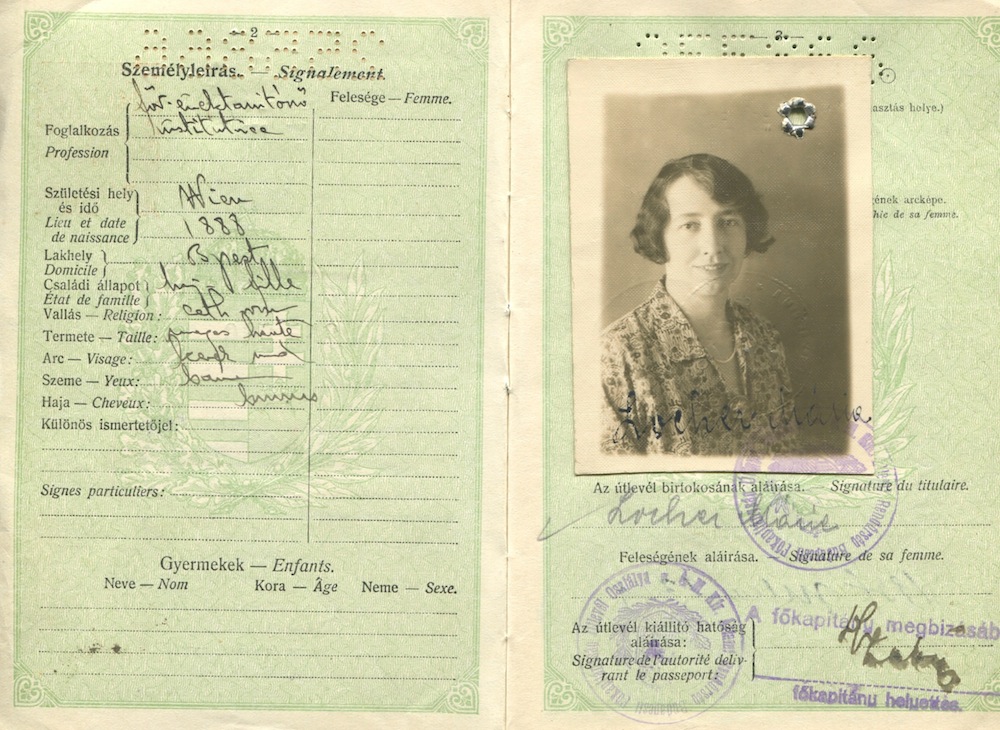 — 2
Személyleírás. — Signalement.
Felesége — Femme.
Foglalkozás
Profession
institutrice
Születési hely
és idő
Lieu et date
de naissance
Wien
1888
Lakhely
Domicile
Bpest
Családi állapot
État de famille
haj. fille
Vallás — Religion:
cath
Termete — Taille:
magas haute
Arc — Visage:
Szeme — Yeux:
barna
Haja — Cheveux:
brunes
Különös ismertetőjel:
Signes particuliers:
Gyermekek — Enfants.
Neve — Nom Kora — Âge Neme — Sexe.
— 3
asztás helye.)
gének arcképe.
hie de sa femme.
Locher Mária
Az útlevél birtokosának aláírása. — Signature du titulaire.
Locher Mária
Feleségének aláírása. — Signature de sa femme.
Az útlevél kiállító hatóság
aláírása:
Signature de l'autorité déliv-
rant le passeport:
A főkapitány megbizásáb
főkapitány helyettes.